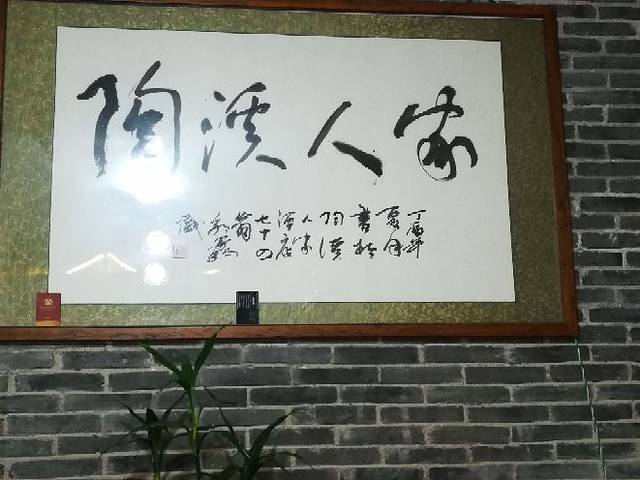 陶溪人家
丁酉年
夏月
書於
陶溪
人家
酒店
七十四
翁